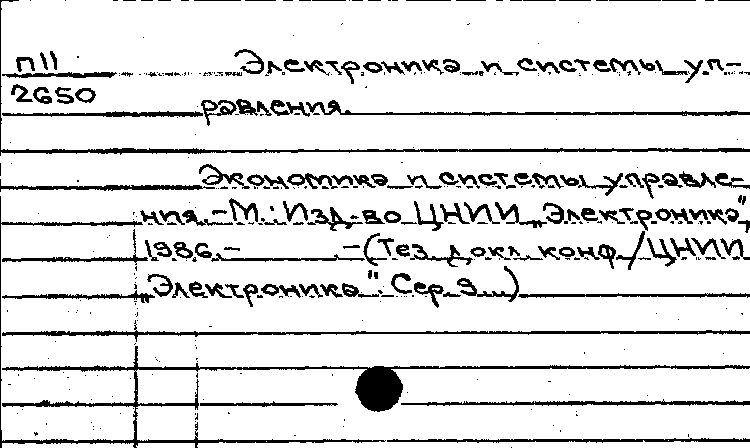 П11 Электроника и системы уп-
2650 равления.
Экономика и системы управле-
ния.-М.: Изд-во ЦНИИ „Электроника",
1986.- .-(Тез. докл. конф./ЦНИИ
„Электроника". Сер. 9...)